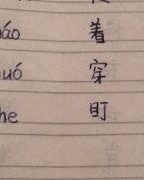 áo 着
uó 穿
he 盯